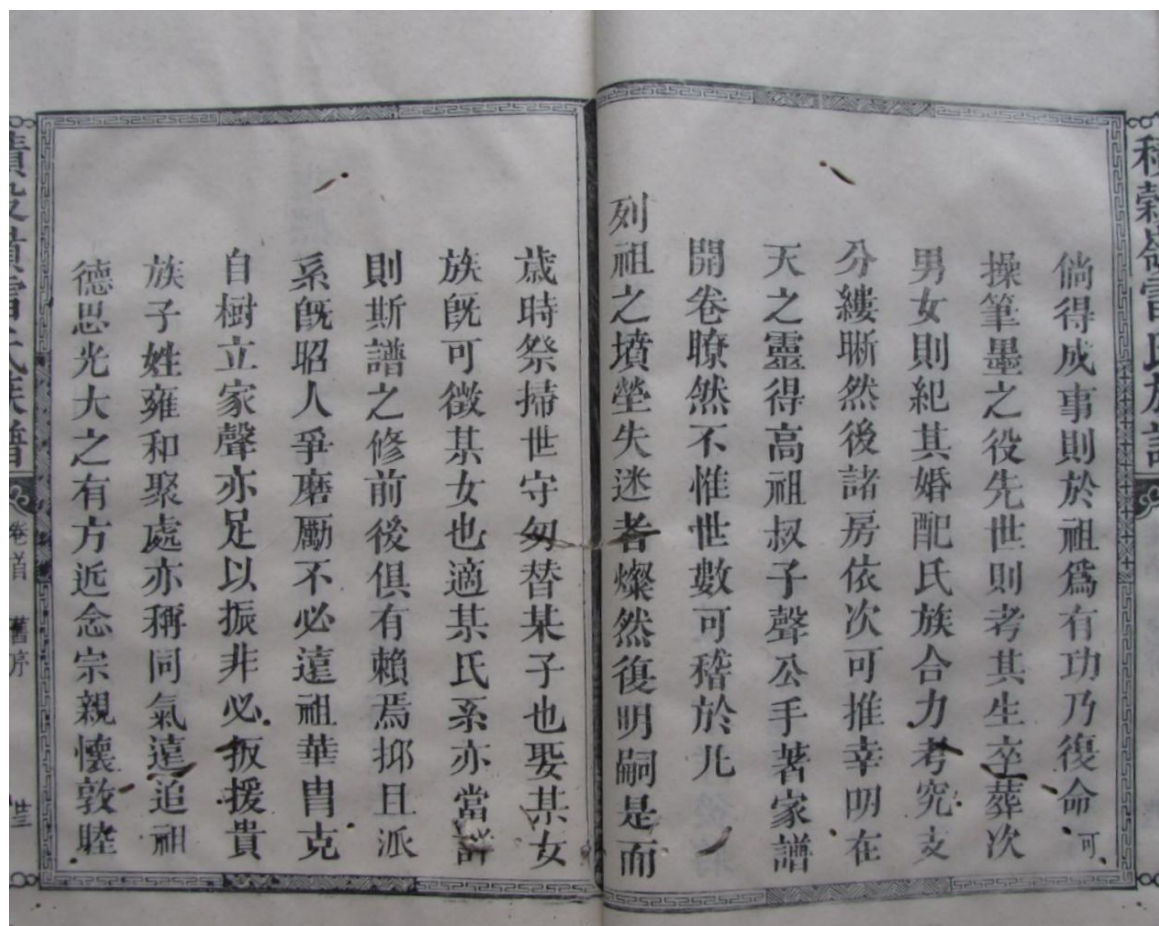 倘得成事則於祖爲有功乃復命可
操筆墨之役先世則考其生卒葬次
男女則紀其婚配氏族合力考究支
分縷晣然後諸房依次可推幸明在
天之靈得高祖叔子聲公手著家譜
開卷瞭然不惟世數可稽於凡
列祖之墳塋失迷者燦然復明嗣是而
歲時祭掃世守勿替某子也娶某女
族旣可徵某女也適某氏系亦當詳
則斯譜之修前後俱有賴焉抑且派
系旣昭人爭磨勵不必遠祖華胄克
自樹立家聲亦足以振非必扳援貴
族子姓雍和聚處亦稱同氣遠追祖
德思光大之有方近念宗親懷敦睦
卷首
舊序